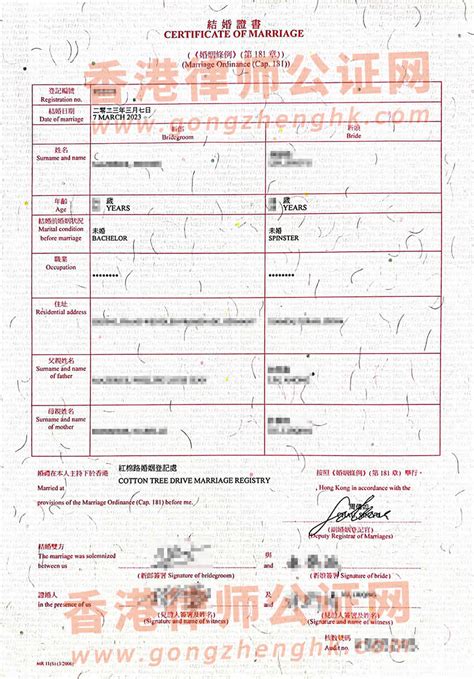 結婚證書
CERTIFICATE OF MARRIAGE
(《婚姻條例》(第 181 章))
(Marriage Ordinance (Cap. 181))
香港律师公证网
www.gongzhenghk.com
登記編號
Registration no.
結婚日期
Date of marriage
二零二三年三月七日
7 MARCH 2023
新郎
Bridegroom
新娘
Bride
姓名
Surname and name
年齡
Age
歲
YEARS
歲
YEARS
結婚前婚姻狀況
Marital condition
before marriage
未婚
BACHELOR
未婚
SPINSTER
職業
Occupation
********
********
住址
Residential address
香港律师公证网
www.gongzhenghk.com
父親姓名
Surname and name
of father
母親姓名
Surname and name
of mother
婚禮在本人主持下於香港
Married at
紅棉路婚姻登記處
COTTON TREE DRIVE MARRIAGE REGISTRY
按照《婚姻條例》(第 181 章) 舉行。
, Hong Kong in accordance with the
provisions of the Marriage Ordinance (Cap. 181) before me.
(副婚姻登記官)
(Deputy Registrar of Marriages)
結婚雙方
The marriage was solemnized
between us
(新郎簽署 Signature of bridegroom)
與
and
(新娘簽署 Signature of bride)
證婚人
in the presence of us
(見證人簽署及姓名)
(Signature and name of witness)
與
and
(見證人簽署及姓名)
(Signature and name of witness)
香港律师公证网
www.gongzhenghk.com
核數號碼
Audit no.